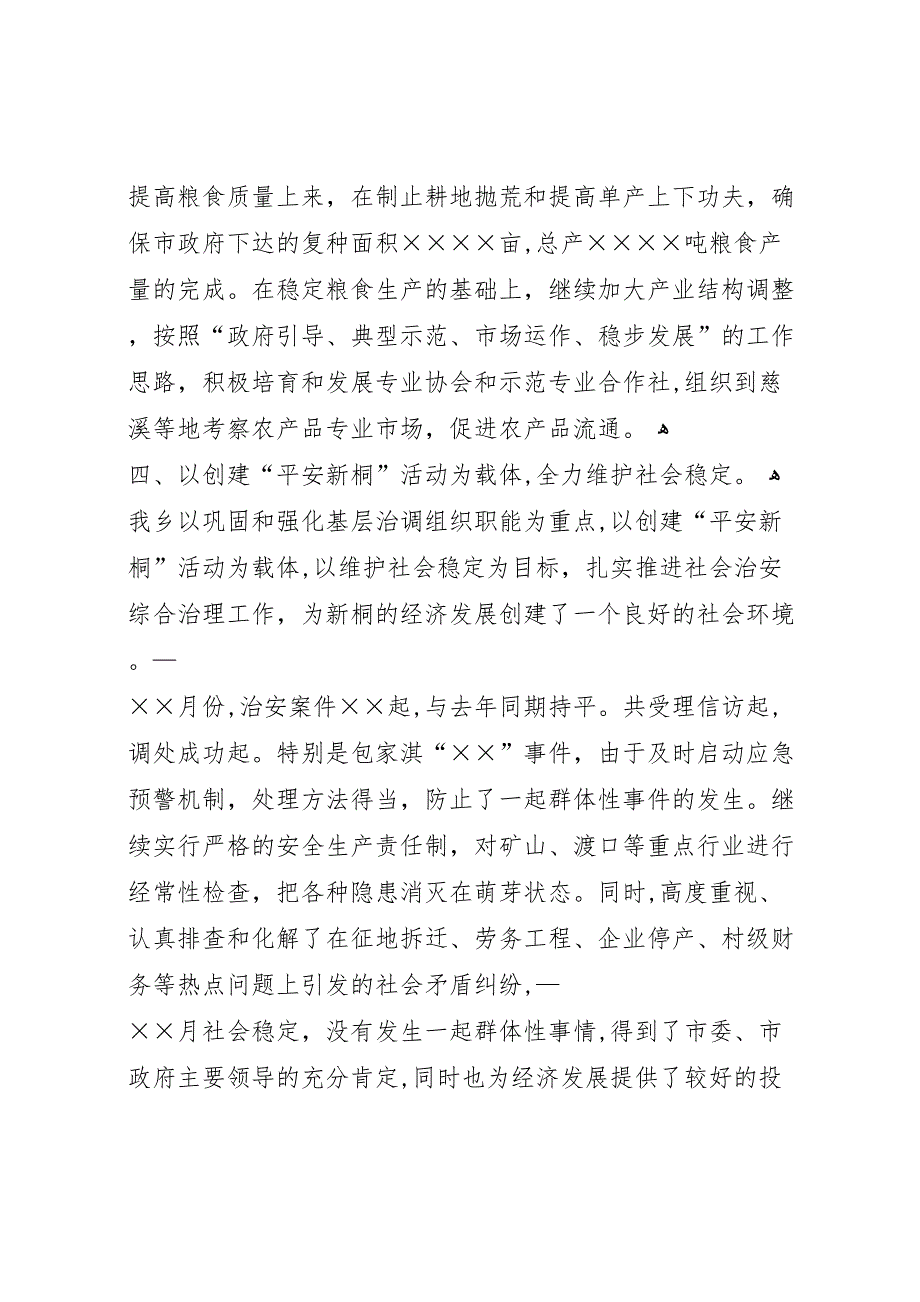 提高粮食质量上来，在制止耕地抛荒和提高单产上下功夫，确
保市政府下达的复种面积××××亩,总产××××吨粮食产
量的完成。在稳定粮食生产的基础上，继续加大产业结构调整
，按照“政府引导、典型示范、市场运作、稳步发展”的工作
思路，积极培育和发展专业协会和示范专业合作社,组织到慈
溪等地考察农产品专业市场，促进农产品流通。 ﻫ
四、以创建“平安新桐”活动为载体,全力维护社会稳定。 ﻫ
我乡以巩固和强化基层治调组织职能为重点,以创建“平安新
桐”活动为载体,以维护社会稳定为目标，扎实推进社会治安
综合治理工作，为新桐的经济发展创建了一个良好的社会环境
。—
××月份,治安案件××起,与去年同期持平。共受理信访起，
调处成功起。特别是包家淇“××”事件，由于及时启动应急
预警机制，处理方法得当，防止了一起群体性事件的发生。继
续实行严格的安全生产责任制，对矿山、渡口等重点行业进行
经常性检查，把各种隐患消灭在萌芽状态。同时,高度重视、
认真排查和化解了在征地拆迁、劳务工程、企业停产、村级财
务等热点问题上引发的社会矛盾纠纷,—
××月社会稳定，没有发生一起群体性事情,得到了市委、市
政府主要领导的充分肯定,同时也为经济发展提供了较好的投